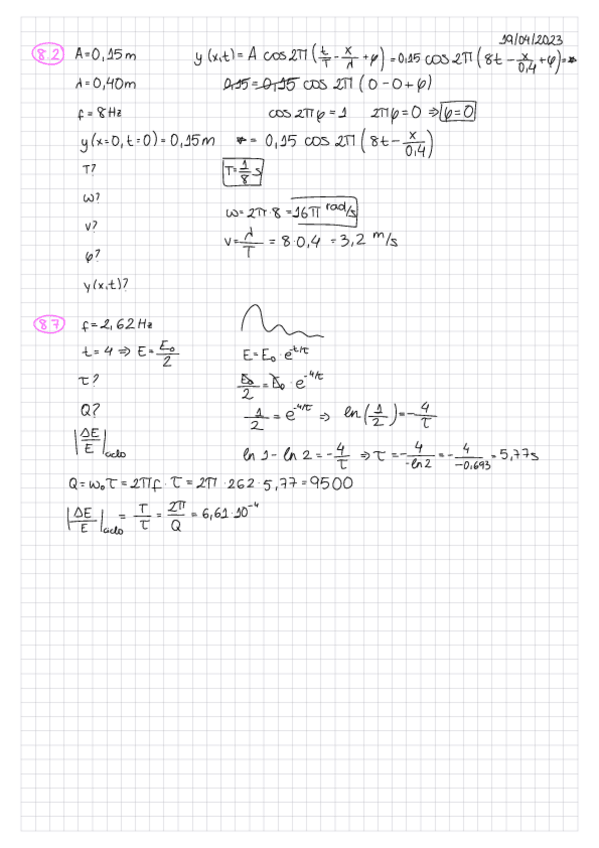 19/04/2023
8.2 A=0,15m y(x,t)= A cos2π(t/T - x/λ + φ) = 0,15 cos2π(8t - x/0,4 + φ)=*
λ=0,40m 0,15=0,15 cos 2π(0-0+φ)
f=8Hz cos2πφ=1 2πφ=0 ⇒ φ=0
y(x=0,t=0)=0,15m *= 0,15 cos 2π(8t - x/0,4)
T? T=1/8 s
ω?
ω=2π·8=16π rad/s
v? v=λ/T = 8·0,4 = 3,2 m/s
φ?
y(x,t)?
8.7 f=2,62Hz
t=4 ⇒ E=E₀/2 E=E₀·e^t/τ
τ? E₀/2=E₀·e^-4/τ
Q? 1/2=e^-4/τ ⇒ ln(1/2)=-4/τ
|ΔE/E|ciclo ln1-ln2=-4/τ ⇒ τ=-4/-ln2=-4/-0,693=5,77s
Q=ω₀τ=2πf·τ=2π·262·5,77=9500
|ΔE/E|ciclo = T/τ = 2π/Q = 6,61·10⁻⁴